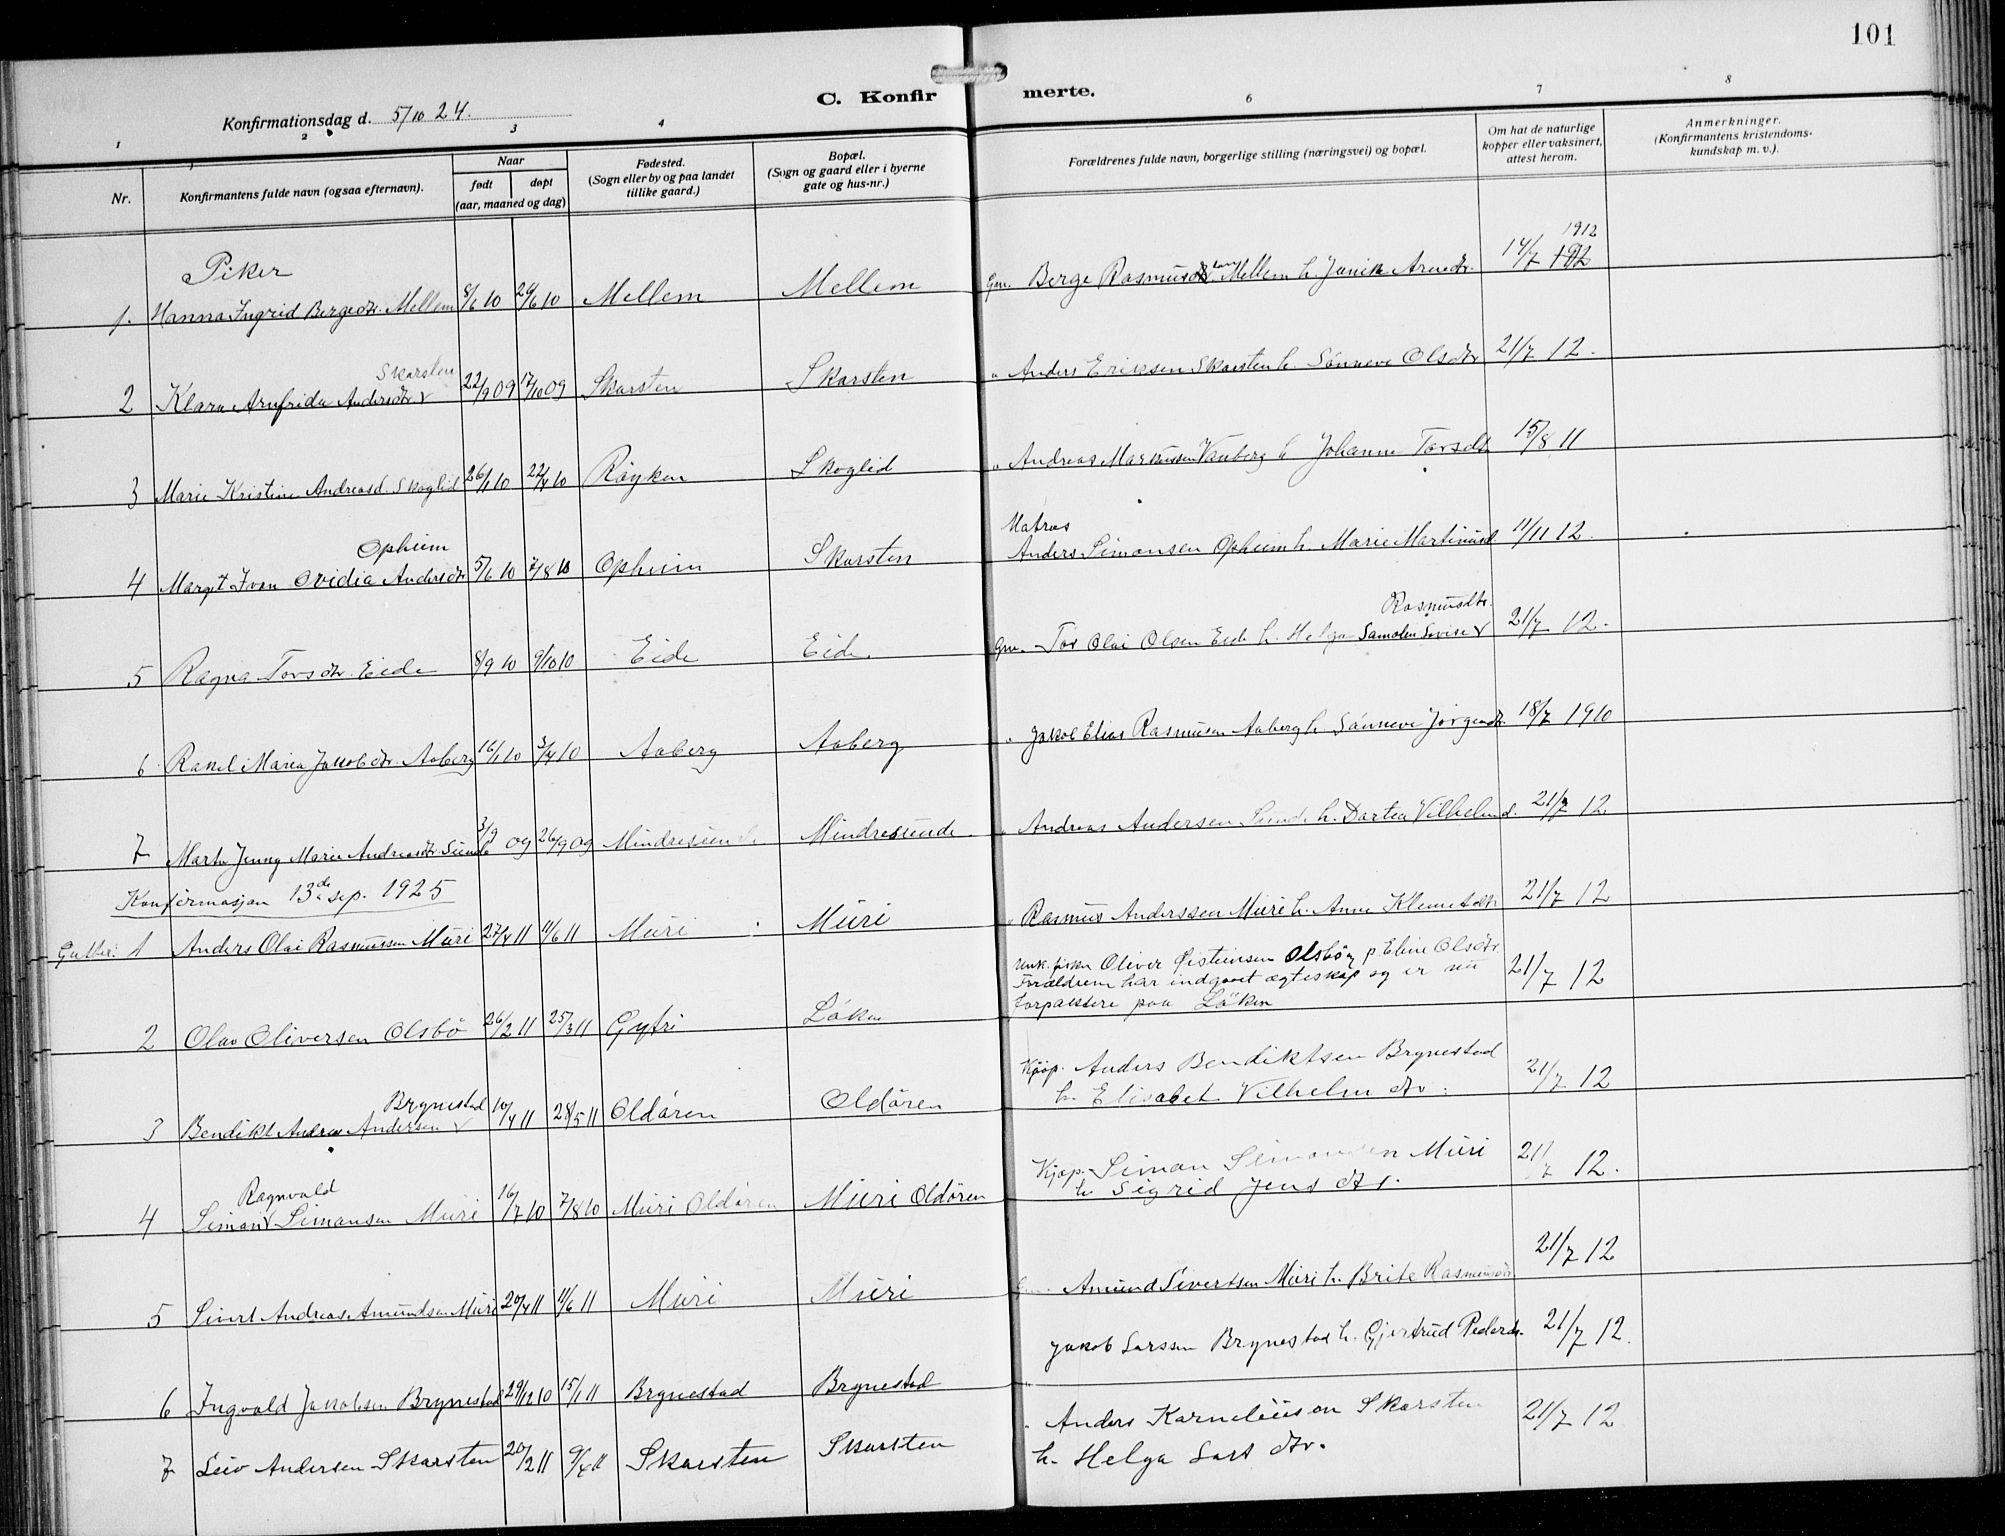 101
C. Konfirmerte.
Konfirmationsdag d. 5/10 24.
1 2 3 4 6 7 8
Nr.
Konfirmantens fulde navn (ogsaa efternavn).
Naar
født døpt
(aar, maaned og dag)
Fødested.
(Sogn eller by og paa landet
tillike gaard.)
Bopæl.
(Sogn og gaard eller i byerne
gate og hus-nr.)
Forældrenes fulde navn, borgerlige stilling (næringsvei) og bopæl.
Om hat de naturlige
kopper eller vaksinert,
attest herom.
Anmerkninger.
(Konfirmantens kristendoms-
kundskap m. v.).
Piker
1. Hanna Ingrid Bergedtr. Mellem 8/6 10 26/6 10 Mellem Mellem Gm. Berge Rasmussen Mellem h. Janike Arnedtr. 14/7 1912
2 Klara Arnfrida Andersdtr Skarsten 22/9 09 17/10 09 Skarsten Skarsten " Anders Eriksen Skarsten h. Sønneve Olsdtr 21/7 12.
3 Marie Kristine Andreasd. Skoglid 26/1 10 22/4 10 Røyken Skoglid " Andreas Markussen Vanberg h Johanne Torsdtr 15/8 11
4 Margit Ivon Ovidia Andersdtr Opheim 5/6 10 7/8 10 Opheim Skarsten Matros
Anders Simonsen Opheim h. Marie Martinusd 11/11 12.
5 Ragna Torsdtr. Eide 8/9 10 9/10 10 Eide Eide. Gm. Tor Olai Olsen Eide h. Helga Samoline Lovise Rasmusdtr. 21/7 12.
6 Rakel Maria Jakobdtr. Aaberg 16/1 10 3/4 10 Aaberg Aaberg " Jakob Elias Rasmussen Aaberg h. Sønneve Jørgensdtr. 18/7 1910
7 Marta Jenny Marie Andreasdtr. Sunde 3/9 09 26/9 09 Mindresunde Mindresunde " Andreas Andersen Sunde h. Dortea Vilhelmsd. 21/7 12
Konfirmasjon 13de sep. 1925
Gutter: 1 Anders Olai Rasmussen Muri 27/4 11 11/6 11 Muri Muri " Rasmus Anderssen Muri h. Anne Klemetsdtr 21/7 12
2 Olav Oliversen Olsbö 26/2 11 25/3 11 Gytri Löken Unk. fisker Oliver Øisteinsen Olsbö og p Eline Olsdtr.
Forældrene har indgaat egteskap og er nu
forpaktere paa Löken 21/7 12
3 Bendikt Andreas Andersen Brynestad 10/4 11 28/5 11 Oldören Oldören Kjöp. Anders Bendiktsen Brynestad
h. Elisabet Vilhelm dtr. 21/7 12
4 Simon Ragnvald Simonsen Muri 16/7 10 7/8 10 Muri Oldören Muri Oldören Kjöp. Simon Simonsen Muri
h Sigrid Jens dtr. 21/7 12.
5 Sivert Andreas Amundsen Muri 20/4 11 11/6 11 Muri Muri Amund Sivertsen Muri h. Brite Rasmusdtr 21/7 12
6 Ingvald Jakobsen Brynestad 29/12 10 15/1 11 Brynestad Brynestad Jakob Larssen Brynestad h. Gjertrud Pedersdtr. 21/7 12.
7 Leiv Andersen Skarsten 20/2 11 9/4 11 Skarsten Skarsten " Anders Karneliusen Skarsten
h. Helga Lars dtr. 21/7 12